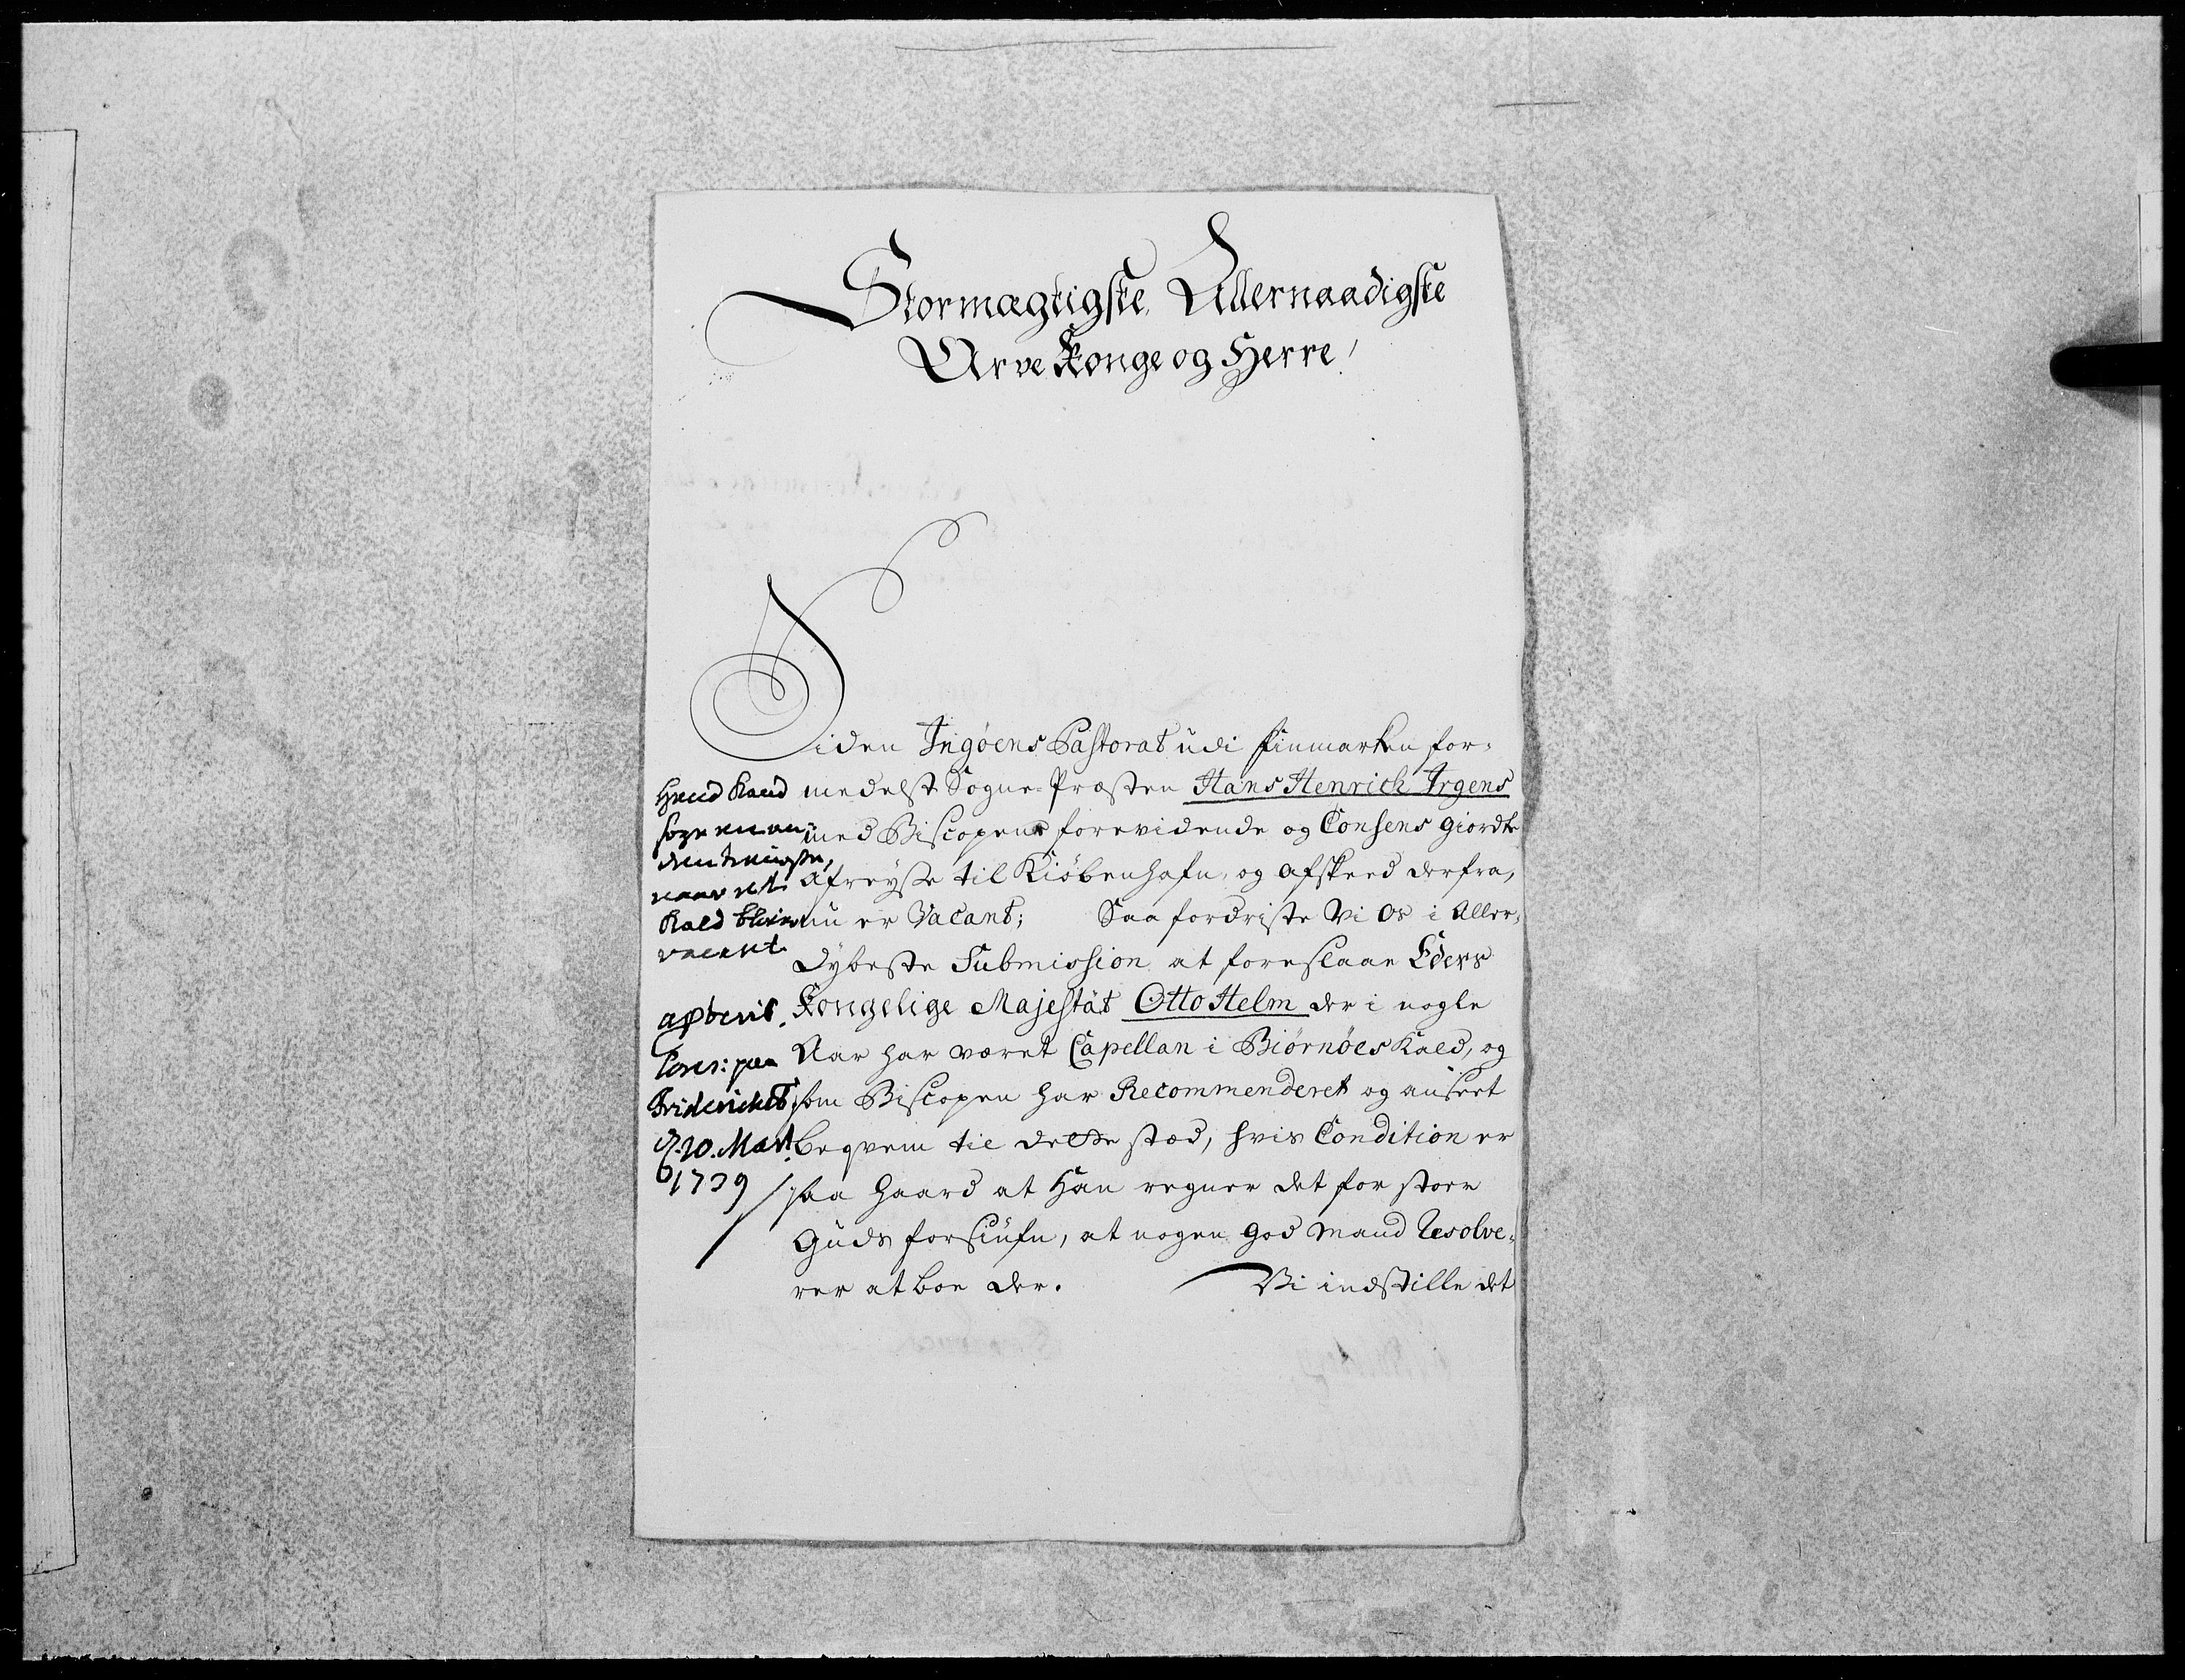 Stormægtigste Allernaadigste
Arve Konge og Herre!
Siden Ingøens Pastorat udi Finmarken for-
medelst Sogne-Præsten Hans Henrich Irgens
med Biscopens forevidende og Consens giordte
Afreyse til Kiöbenhafn, og afskeed derfra,
nu er Vacant; Saa fordriste Vi Os i Aller-
Dybeste Submission at foreslaae Eders
Kongelige Majestät Otto Helm der i nogle
Aar har været Capellan i Biörnöes Kald, og
som Biscopen har Recommenderet og anseet
beqvem til dette stæd, hvis Condition er
saa haard at Han regner det for stoer
Guds forsiufn, at nogen god Mand Resolve-
rer at boe der. Vi indstille det
Hand kand
søge en an-
den tieniste,
naar et
Kald bliver
vacant
approb.
Conc: paa
Fridericksb:
d. 20. Mart.
1739